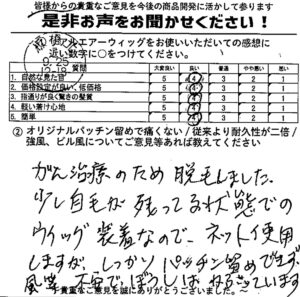 皆様からの貴重なご意見を今後の商品開発に活かして参ります
是非お声をお聞かせください!
エアーウィッグをお使いいただいての感想に
近い数字に○をつけてください。
9.25
質問 大変良い 良い 普通 やや悪い 悪い
1. 自然な見た目 5 4 3 2 1
2. 価格設定が良い、低価格 5 4 3 2 1
3. 指通りが良く驚きの髪質 5 4 3 2 1
4. 軽い着け心地 5 4 3 2 1
5. 簡単 5 4 3 2 1
② オリジナルパッチン留めで痛くない/従来より耐久性が二倍/
強風、ビル風についてご意見等あれば教えてください
がん治療のため脱毛しました。
少し自毛が残ってる状態での
ウィッグ装着なので、ネット使用
しますが、しっかりパッチン留めできず
風
貴重なご意見を誠にありがとうございました。